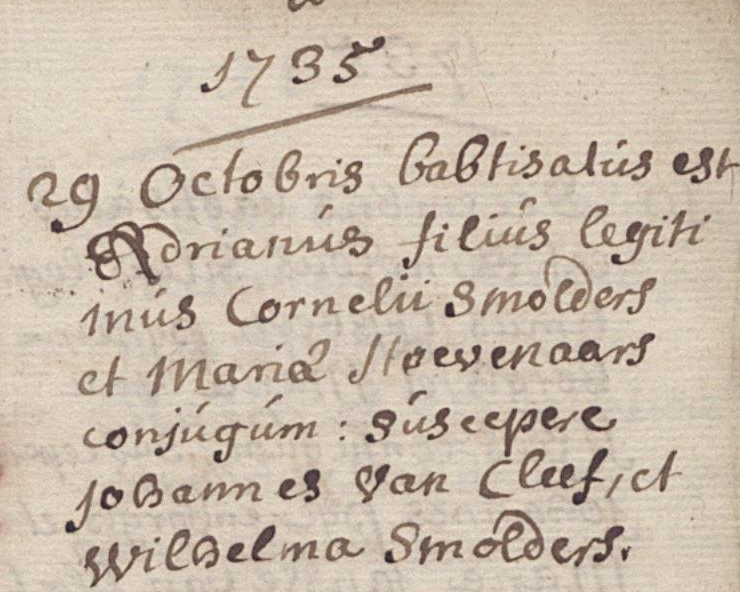 1735
29 Octobris babtisatús est
Adrianús filiús legiti
mús Cornelii Smolders
et Mariæ Stoevenaars
conjúgúm: súscepere
Johannes van Cleef, et
Wilhelma Smolders.